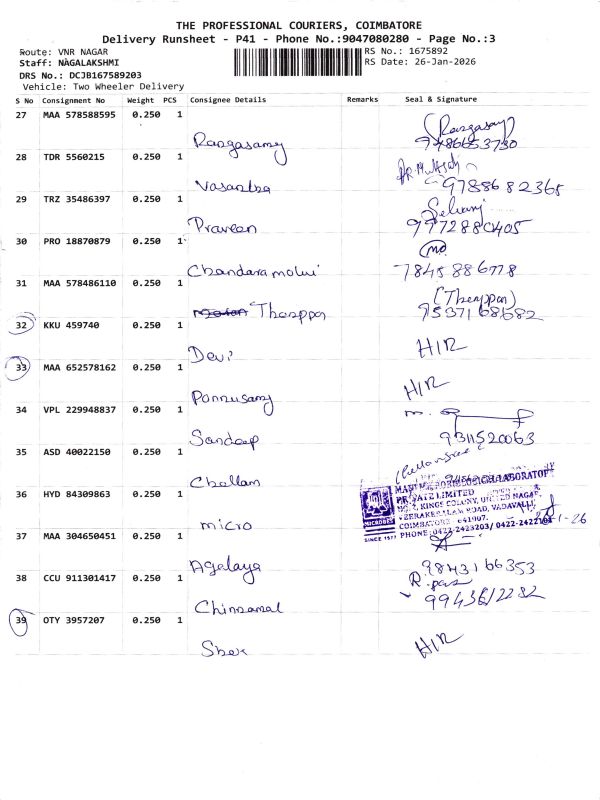 THE PROFESSIONAL COURIERS, COIMBATORE
Delivery Runsheet - P41 - Phone No.:9047080280 - Page No.:3
Route: VNR NAGAR
Staff: NAGALAKSHMI
DRS No.: DCJB167589203
Vehicle: Two Wheeler Delivery
RS No.: 1675892
RS Date: 26-Jan-2026
S No Consignment No Weight PCS Consignee Details Remarks Seal & Signature
27 MAA 578588595 0.250 1
Rangasamy (Rangasamy)
9486653730
28 TDR 5560215 0.250 1
Vasantha
9788682365
29 TRZ 35486397 0.250 1
Praveen Selvaraj
30 PRO 18870879 0.250 1
Chandaramolui
7845886778
31 MAA 578486110 0.250 1
Thenppan (Thenppan)
32 KKU 459740 0.250 1
Devi H/R
33 MAA 652578162 0.250 1
Ponnusamy H/R
34 VPL 229948837 0.250 1
Sandeep
9311520063
35 ASD 40022150 0.250 1
Chellam
36 HYD 84309863 0.250 1
micro
PRIVATE LIMITED
KINGS COLONY, UNITED NAGAR,
VEERAKERALAM ROAD, VADAVALLI,
COIMBATORE - 641007.
MICROBES
SINCE 1977
37 MAA 304650451 0.250 1
Agalaya
9843166353
38 CCU 911301417 0.250 1
Chinnamal
9943612282
39 OTY 3957207 0.250 1
Sber H/R